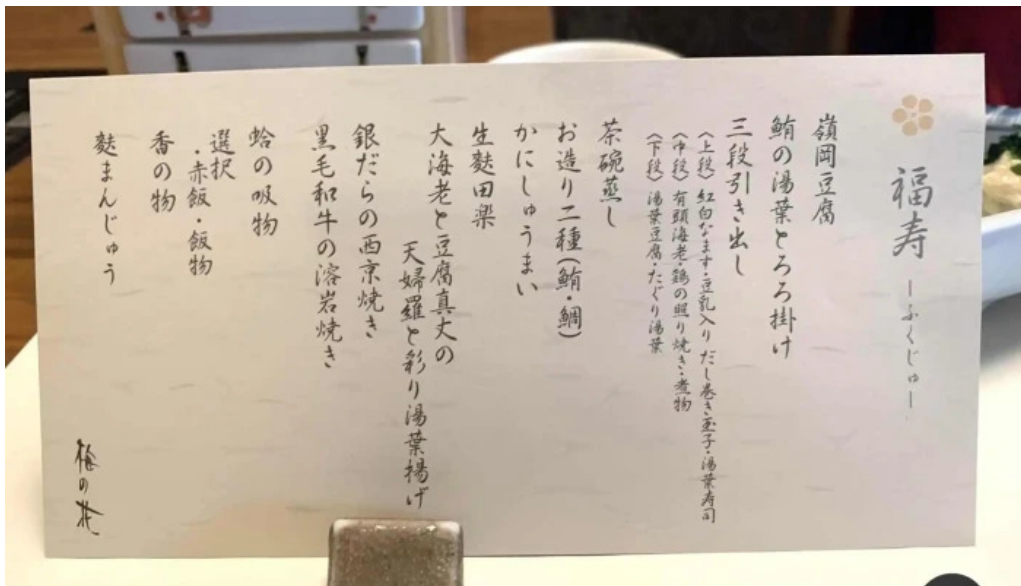 福寿 ーふくじゅー
嶺岡豆腐
鮪の湯葉とろろ掛け
三段引き出し
〈上段〉紅白なます・豆乳入りだし巻き玉子・湯葉寿司
〈中段〉有頭海老・鶏の照り焼き・煮物
〈下段〉湯葉豆腐・たぐり湯葉
茶碗蒸し
お造り二種(鮪・鯛)
かにしゅうまい
生麩田楽
大海老と豆腐真丈の
天婦羅と彩り湯葉揚げ
銀だらの西京焼き
黒毛和牛の溶岩焼き
蛤の吸物
選択
・赤飯・飯物
香の物
麩まんじゅう
梅の花